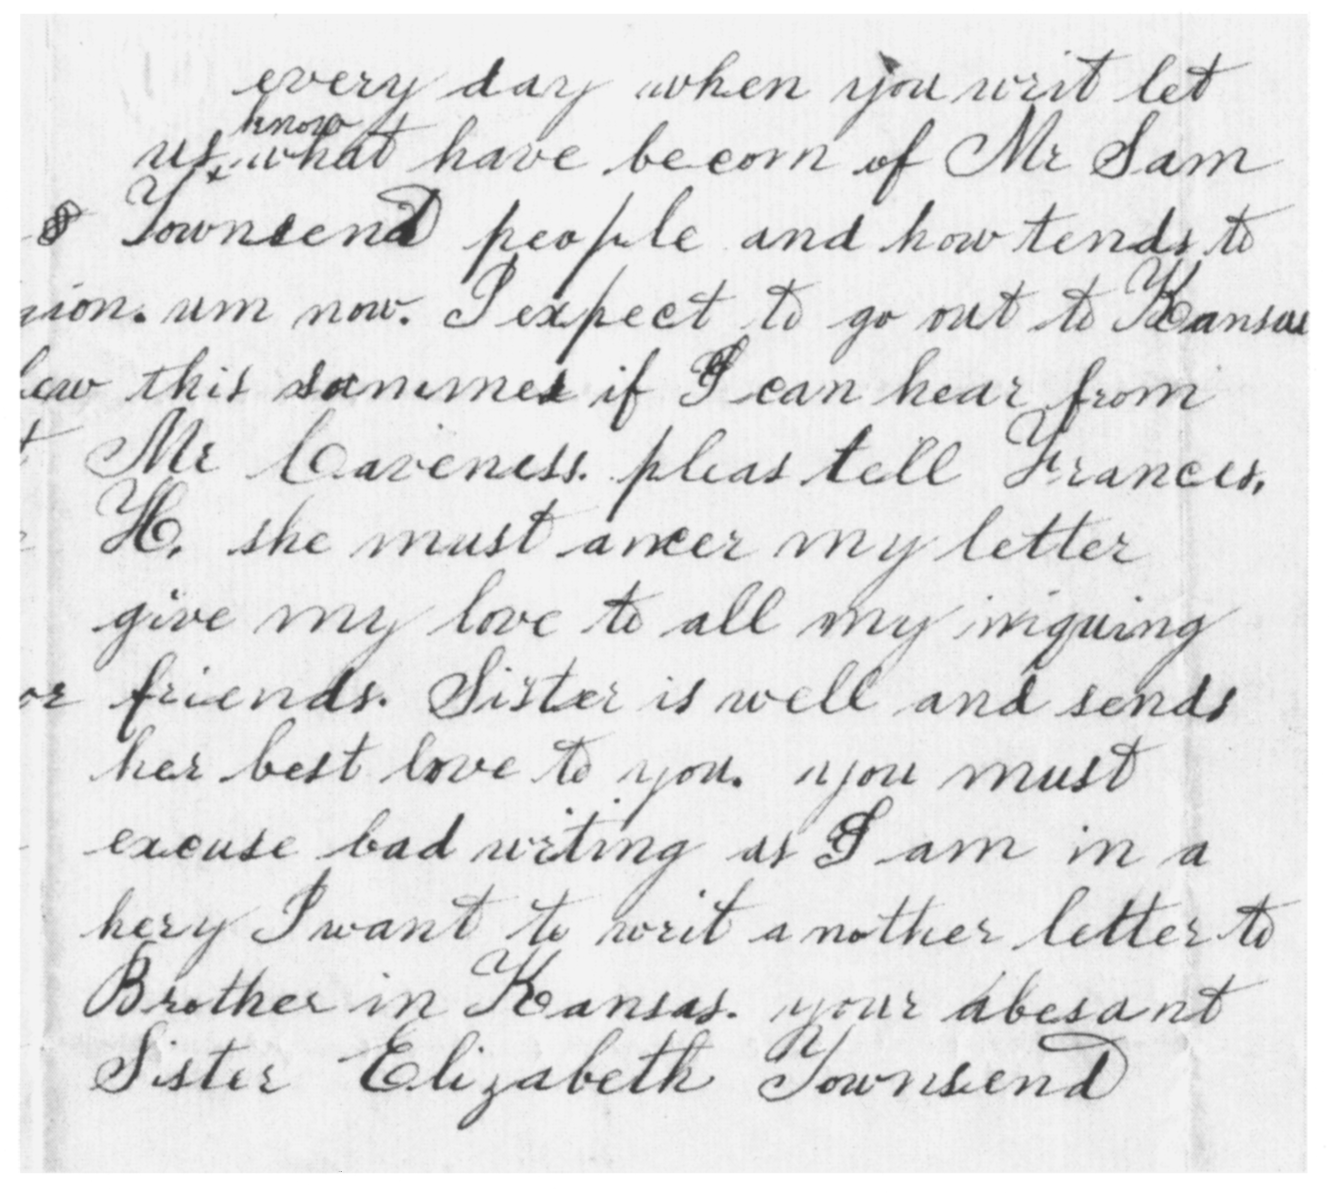 every day when you writ let
know
us what have becom of Mr Sam
Townsend people and how tends to
um now. I expect to go out to Kansas
this sommer if I can hear from
Mr Caveness. pleas tell Frances.
H. she must ancer my letter
give my love to all my inquing
or friends. Sister is well and sends
her best love to you. you must
excuse bad writing as I am in a
hery I want to writ another letter to
Brother in Kansas. your abesant
Sister Elizabeth Townsend